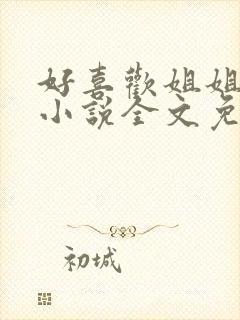 好喜歡姐姐
小說全文免
初城